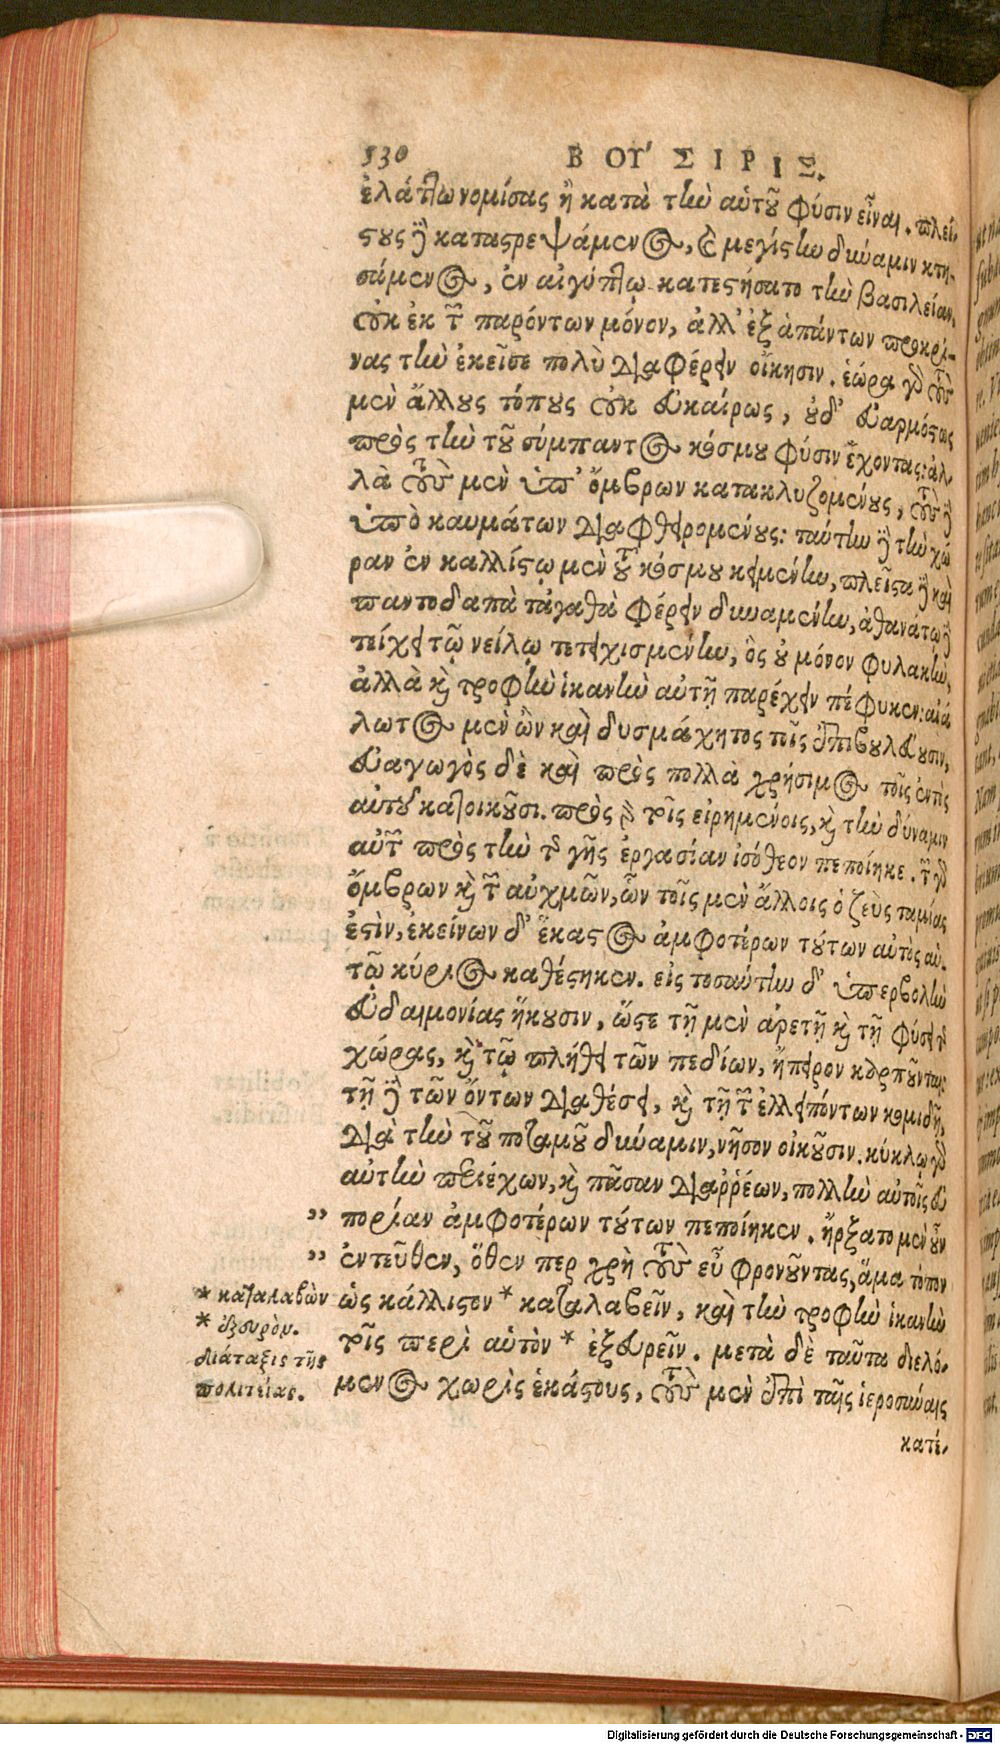 530 ΒΟΎΣΙΡΙΣ.
ἐλάττω νομίσας ἢ κατὰ τὴν αὑτοῦ φύσιν εἶναι. πλεί-
στους δὲ καταστρεψάμενος, καὶ μεγίστην δύναμιν κτη-
σάμενος, ἐν αἰγύπτῳ κατεστήσατο τὴν βασιλείαν,
οὐκ ἐκ τῶν παρόντων μόνον, ἀλλ' ἐξ ἁπάντων προκρί-
νας τὴν ἐκεῖσε πολὺ διαφέρειν οἴκησιν. ἑώρα γὰρ τοὺς
μὲν ἄλλους τόπους οὐκ εὐκαίρως, οὐδ' εὐαρμόστως
πρὸς τὴν τοῦ σύμπαντος κόσμου φύσιν ἔχοντας: ἀλ-
λὰ τοὺς μὲν ὑπ' ὄμβρων κατακλυζομένους, τοὺς δὲ
ὑπὸ καυμάτων διαφθειρομένους: ταύτην δὲ τὴν χώ
ραν ἐν καλλίστῳ μὲν τοῦ κόσμου κειμένην, πλεῖστα δὲ καὶ
παντοδαπὰ τἀγαθὰ φέρειν δυναμένην, ἀθανάτῳ δὲ
τείχει τῷ νείλῳ τετειχισμένην, ὃς οὐ μόνον φυλακὴν,
ἀλλὰ καὶ τροφὴν ἱκανὴν αὐτῇ παρέχειν πέφυκεν: ἀνά
λωτος μὲν ὢν καὶ δυσμάχητος τοῖς ἐπιβουλεύουσιν,
εὐαγωγὸς δὲ καὶ πρὸς πολλὰ χρήσιμος τοῖς ἐντὸς
αὐτοῦ κατοικοῦσι. πρὸς γὰρ τοῖς εἰρημένοις, καὶ τὴν δύναμιν
αὐτῶν πρὸς τὴν τῆς γῆς ἐργασίαν ἰσόθεον πεποίηκε. τῶν γὰρ
ὄμβρων καὶ τῶν αὐχμῶν, ὧν τοῖς μὲν ἄλλοις ὁ ζεὺς ταμίας
ἐστὶν, ἐκείνων δ' ἕκαστος ἀμφοτέρων τούτων αὐτὸς αὑ-
τῷ κύριος καθέστηκεν. εἰς τοσαύτην δ' ὑπερβολὴν
εὐδαιμονίας ἥκουσιν, ὥστε τῇ μὲν ἀρετῇ καὶ τῇ φύσει τῆς
χώρας, καὶ τῷ πλήθει τῶν πεδίων, ἤπειρον καρποῦνται:
τῇ δὲ τῶν ὄντων διαθέσει, καὶ τῇ τῶν ἐλλειπόντων κομιδῇ,
διὰ τὴν τοῦ ποταμοῦ δύναμιν, νῆσον οἰκοῦσιν. κύκλῳ γὰρ
αὐτὴν περιέχων, καὶ πᾶσαν διαῤῥέων, πολλὴν αὐτοῖς εὐ
" πορίαν ἀμφοτέρων τούτων πεποίηκεν. ἤρξατο μὲν οὖν
" ἐντεῦθεν, ὅθεν περ χρὴ τοὺς εὖ φρονοῦντας, ἅμα τόπον
* καταλαβὼν ὡς κάλλιστον * καταλαβεῖν, καὶ τὴν τροφὴν ἱκανὴν
* ἐξευρὸν. τοῖς περὶ αὑτὸν * ἐξευρεῖν. μετὰ δὲ ταῦτα διελό-
διάταξις τῆς
πολιτείας. μενος χωρὶς ἑκάστους, τοὺς μὲν ἐπὶ ταῖς ἱεροσύναις
κατέ-
Digitalisierung gefördert durch die Deutsche Forschungsgemeinschaft - DFG